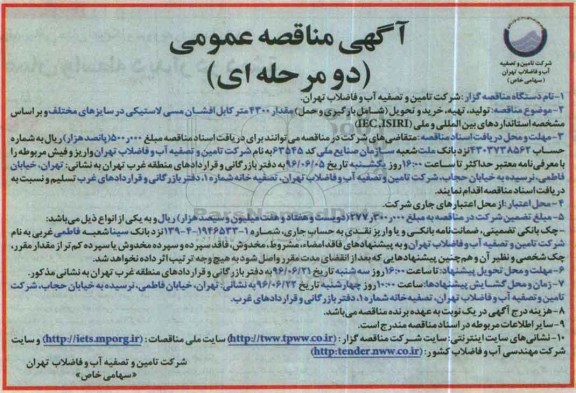 آگهی مناقصه عمومی
(دو مرحله ای)
شرکت تامین و تصفیه
آب و فاضلاب تهران
(سهامی خاص)
۱- نام دستگاه مناقصه گزار: شرکت تامین و تصفیه آب و فاضلاب تهران.
۲- موضوع مناقصه: تولید، تهیه، خرید و تحویل (شامل بارگیری و حمل) مقدار ۴۳۰۰ متر کابل افشان مسی لاستیکی در سایزهای مختلف و بر اساس
مشخصه استانداردهای بین المللی و ملی (IEC ,ISIRI).
۳- مهلت و محل دریافت اسناد مناقصه: متقاضی های شرکت در مناقصه می توانند برای دریافت اسناد مناقصه مبلغ ۵۰۰٫۰۰۰ (پانصد هزار) ریال به شماره
حساب ۴۳۰۳۷۳۸۵۶۲ نزد بانک ملت شعبه سازمان صنایع ملی کد ۶۳۵۴۵ به نام شرکت تامین و تصفیه آب و فاضلاب تهران واریز و فیش مربوطه را
با معرفی نامه معتبر حداکثر تا ساعت ۱۶:۰۰ روز یکشنبه تاریخ ۹۶/۰۶/۰۵ به دفتر بازرگانی و قراردادهای منطقه غرب تهران به نشانی: تهران، خیابان
فاطمی، نرسیده به خیابان حجاب، شرکت تامین و تصفیه آب و فاضلاب تهران، تصفیه خانه شماره ۱، دفتر بازرگانی و قراردادهای غرب تسلیم و نسبت به
دریافت اسناد مناقصه اقدام نمایند.
۴- محل اعتبار: از محل اعتبارهای جاری شرکت.
۵- مبلغ تضمین شرکت در مناقصه به مبلغ ۲۷۷٫۳۰۰٫۰۰۰ (دویست و هفتاد و هفت میلیون و سیصد هزار) ریال و به یکی از انواع ذیل می باشد:
- چک بانکی تضمینی، ضمانت نامه بانکی و یا واریز نقدی به حساب جاری، شماره ۱-۱۹۴۶۵۳۳-۴-۱۳۹ نزد بانک سینا شعبه فاطمی غربی به نام
شرکت تامین و تصفیه آب و فاضلاب تهران و به پیشنهادهای فاقد امضاء، مشروط، مخدوش، فاقد سپرده و سپرده مخدوش یا سپرده کم تر از مقدار مقرر،
چک شخصی و نظیر آن و هم چنین پیشنهادهایی که بعد از انقضای مدت مقرر واصل شود به هیچ وجه ترتیب اثر داده نخواهد شد.
۶- مهلت و محل تحویل پیشنهاد: تا ساعت ۱۶:۰۰ روز سه شنبه تاریخ ۹۶/۰۶/۲۱ به دفتر بازرگانی و قراردادهای منطقه غرب تهران به نشانی مذکور.
۷- زمان و محل گشایش پیشنهادها: ساعت ۱۰:۰۰ روز چهارشنبه تاریخ ۹۶/۰۶/۲۲ به نشانی: تهران، خیابان فاطمی، نرسیده به خیابان حجاب، شرکت
تامین و تصفیه آب و فاضلاب تهران، تصفیه خانه شماره ۱، دفتر بازرگانی و قراردادهای غرب.
۸- هزینه درج آگهی در یک نوبت به عهده برنده مناقصه می باشد.
۹- سایر اطلاعات مربوطه در اسناد مناقصه مندرج است.
۱۰- نشانی های سایت اینترنتی: سایت شرکت مناقصه گزار: (http://tww.tpww.co.ir) سایت ملی مناقصات: (http://iets.mporg.ir) و سایت
شرکت مهندسی آب و فاضلاب کشور: (http:tender.nww.co.ir)
شرکت تامین و تصفیه آب و فاضلاب تهران
«سهامی خاص»